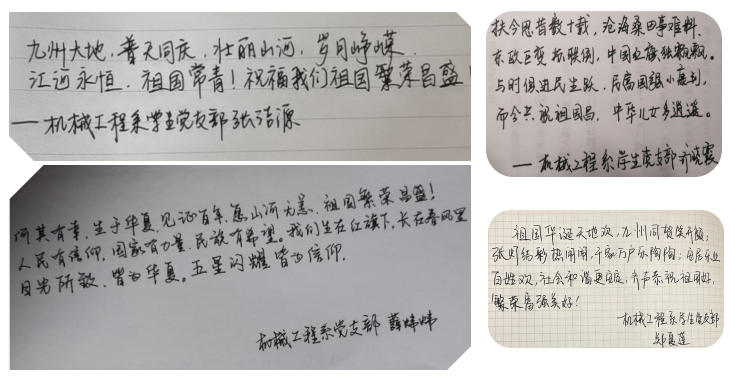 九州大地，普天同庆，壮丽山河，岁月峥嵘，
江河永恒，祖国常青！祝福我们祖国繁荣昌盛！
——机械工程系学生党支部张洁源
扶今思昔数十载，沧海桑田事难料、
东欧巨变苏联倒，中国红旗独飘飘。
与时俱进民生跃，民富国强小康到，
而今共祝祖国昌，中华儿女多逍遥。
——机械工程系学生党支部 齐晓霞
何其有幸，生于华夏，见证百年，愿山河无恙，祖国繁荣昌盛！
人民有信仰，国家有力量，民族有希望。我们生在红旗下，长在春风里
目光所致，皆为华夏。五星闪耀 皆为信仰.
机械工程系党支部 薛炜炜
祖国华诞天地欢，九州同贺笑开颜；
张灯结彩热闹闹，千家万户乐陶陶；安居乐业
百姓欢，社会和谐更安定，齐声恭祝祖国好，
繁荣富强美好！
—机械工程系学生党支部
郑夏莲